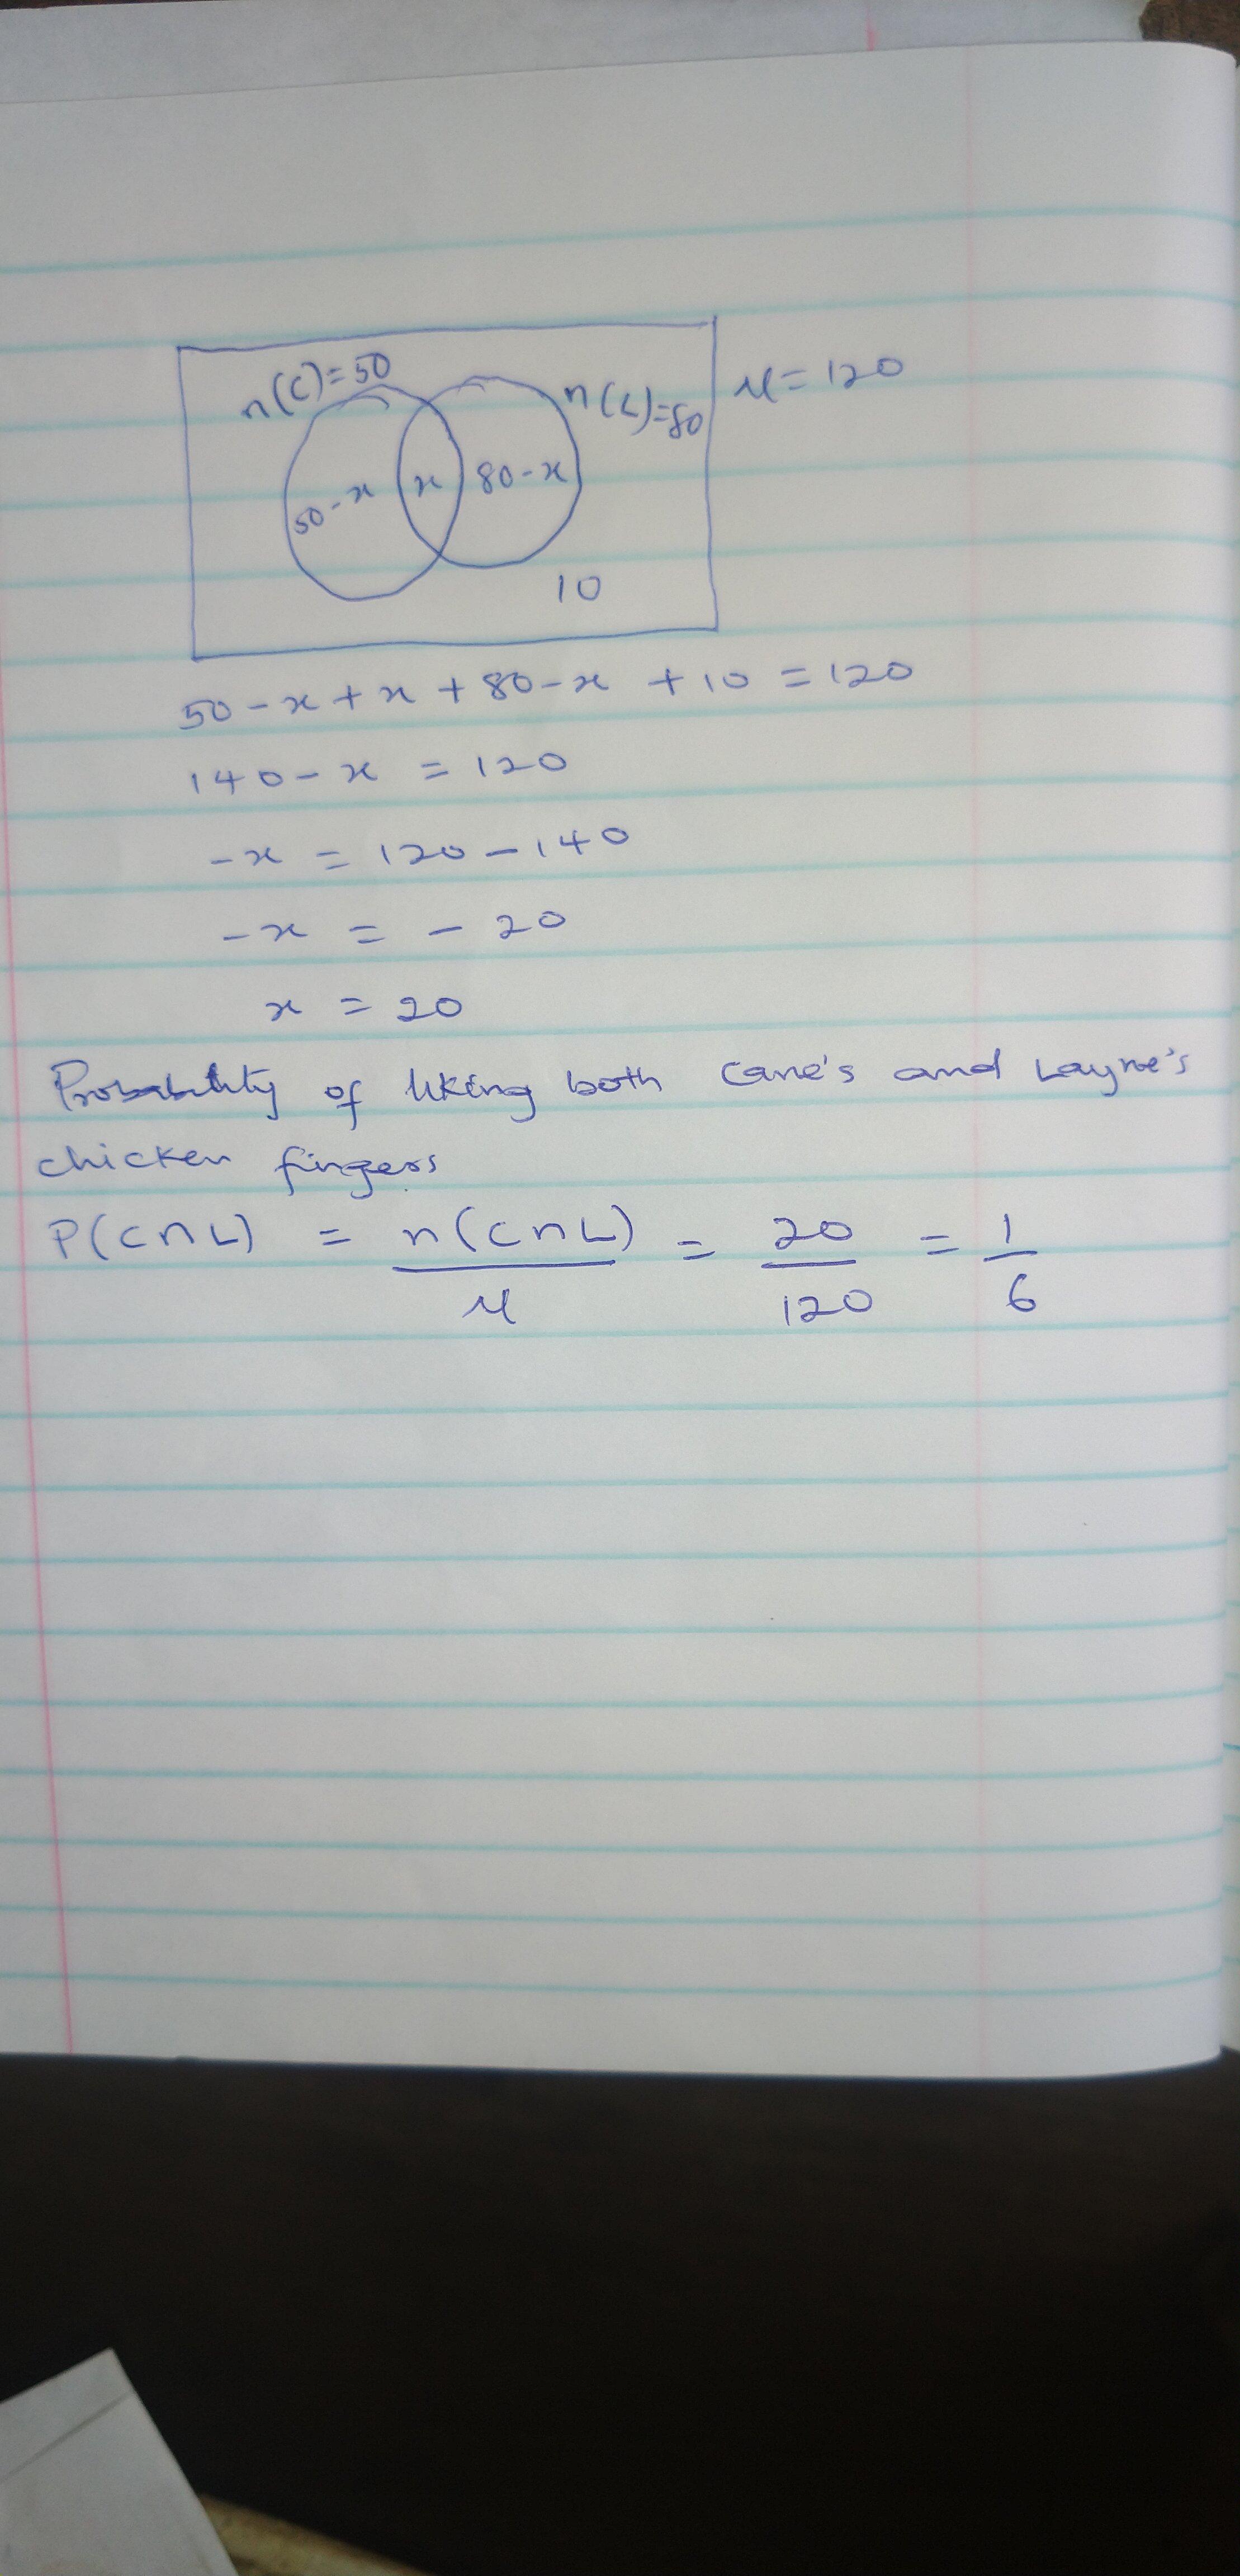 n(C)=50
n(L)=80
μ = 120
50-x
x
80-x
10
50-x+x+80-x +10 = 120
140-x = 120
-x = 120-140
-x = -20
x = 20
Probability of liking both Cane's and Layne's
chicken fingers
P(C∩L) = n(C∩L)/μ = 20/120 = 1/6